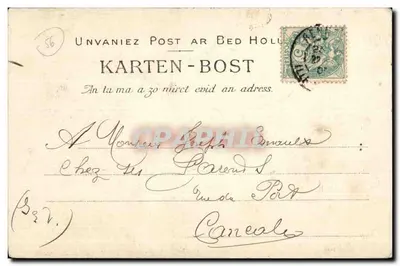 56
UNVANIEZ POST AR BED HOLL
KARTEN-BOST
An tu ma a zo miret evid an adress.
A Monsieur Joseph
Chez ses Parents
rue du Port
(I & V.)
Cancale